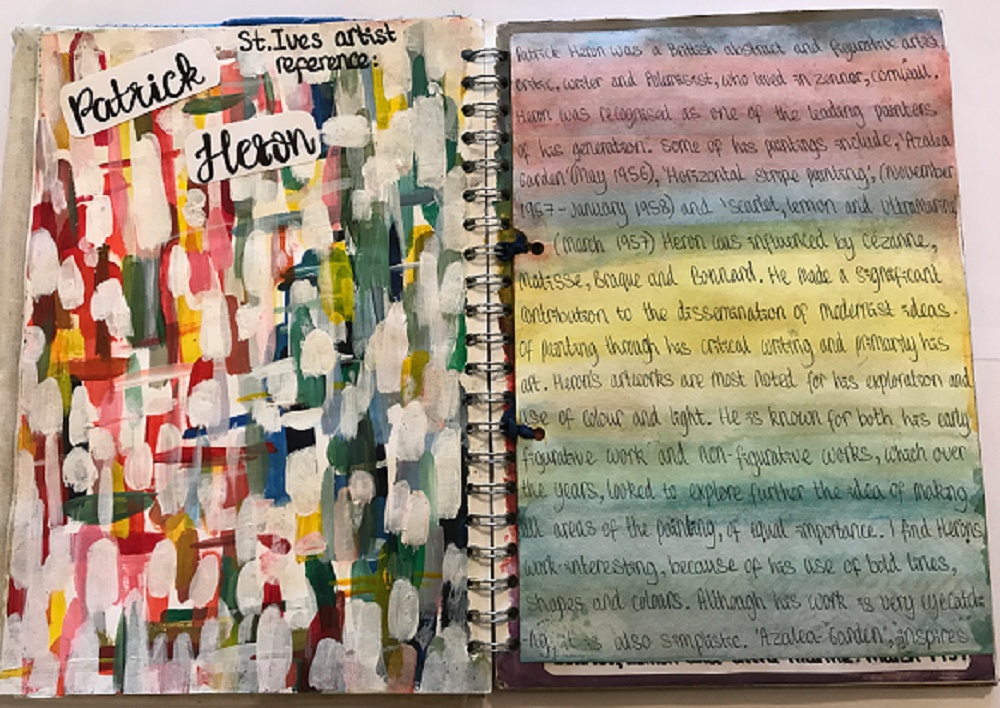 St.Ives artist
reference:
Patrick
Heron
Patrick Heron was a British abstract and figurative artist,
critic, writer and Polemicist, who lived in zennor, cornwall.
Heron was recognised as one of the leading painters
of his generation. Some of his paintings include, 'Azalea
Garden' (May 1956), 'Horizontal stripe painting', (November
1957-January 1958) and 'Scarlet, lemon and Ultramarine'
(March 1957) Heron was influenced by Cézanne,
Matisse, Braque and Bonnard. He made a significant
contribution to the dissemination of modernist ideas.
Of painting through his critical writing and primarily his
art. Heron's artworks are most noted for his exploration and
use of colour and light. He is known for both his early
figurative work and non-figurative works, which over
the years, looked to explore further the idea of making
all areas of the painting, of equal importance. I find Herons
work interesting, because of his use of bold lines,
shapes and colours. Although his work is very eyecatch-
ing, it is also simplistic. 'Azalea Garden', inspires